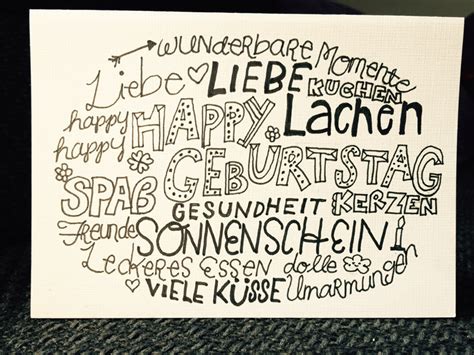 wunderbare Momente
Liebe LIEBE KUCHEN
happy HAPPY Lachen
happy GEBURTSTAG
SPAß GESUNDHEIT KERZEN
Freunde SONNENSCHEIN
Leckeres Essen dolle
VIELE KÜSSE Umarmungen